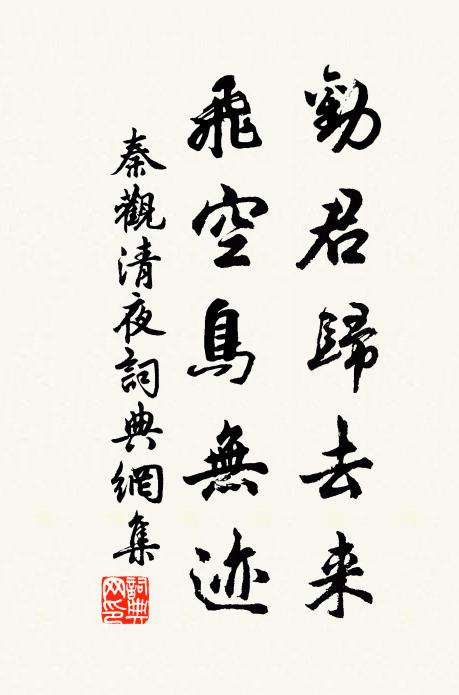 勸君歸去来
飛空鳥無迹
秦觀清夜詞典網集
詞典网印